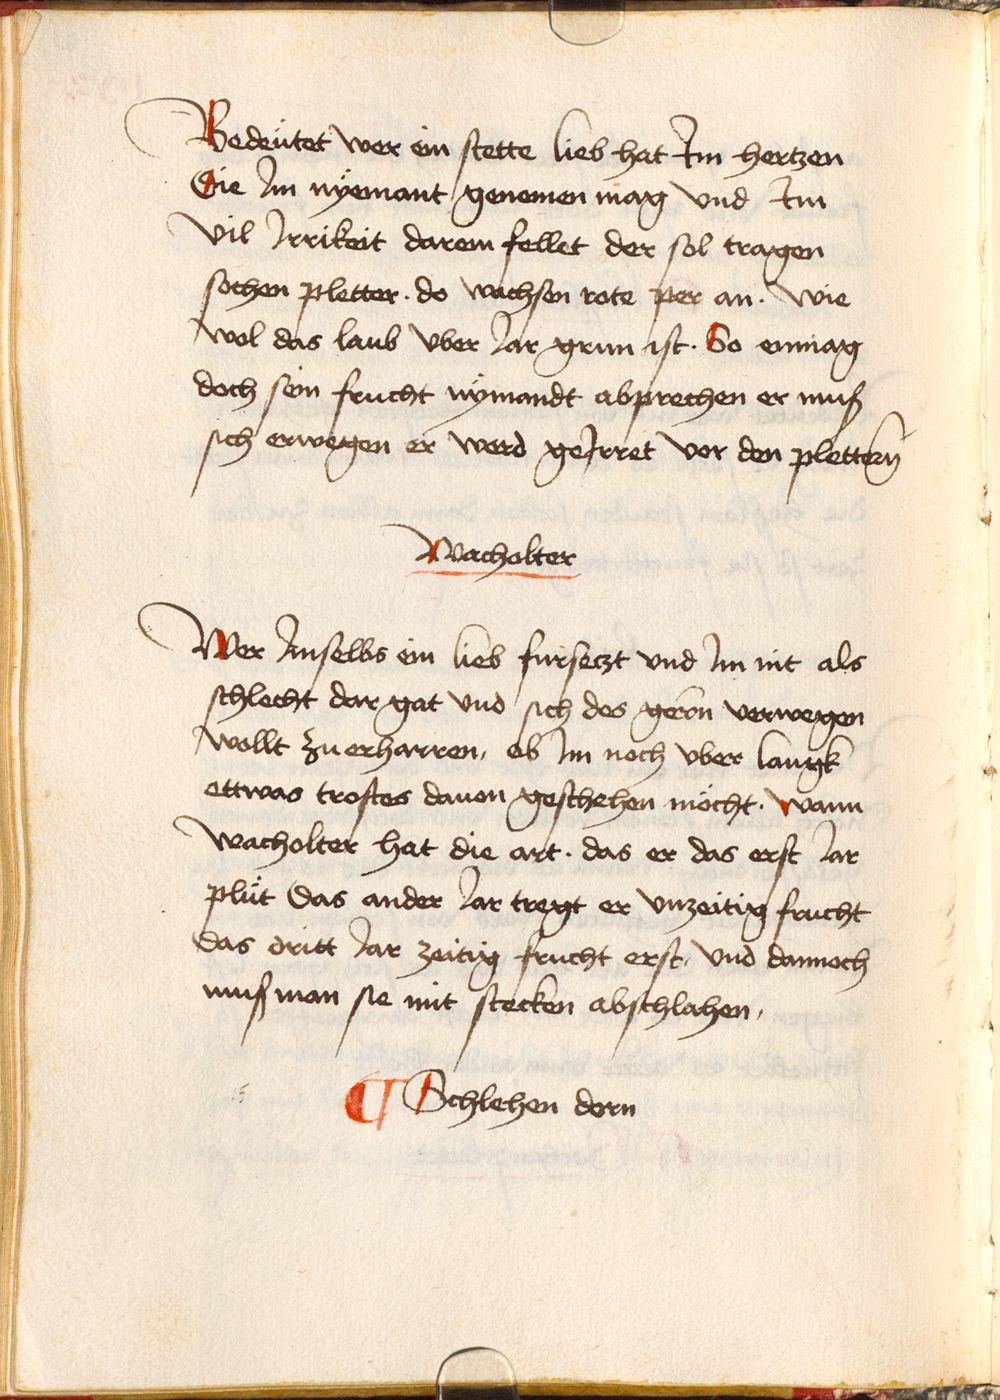 Bedeütet wer ein stette lieb hat Im hertzen
Die Im nÿemant genemen mag vnd Im
vil Irrikeit darein fellet der sol tragen
sochen pletter · do wachsen rote per an · wie
wol das laub vber Iar grun ist · So enmag
doch sein frucht nÿmandt abprechen er muß
sich erwegen er werd geIrret vor den plettern̄
Wacholter
Wer Imselbs ein lieb fursetzt vnd Im nit als
schlecht dar gat vnd sich des gern̄ verwegen
wollt zu erharren, ob Im noch vber langk
ettwas trostes dauon geschehen möcht · wann
wacholter hat die art · das er das erst Iar
plüt Das ander Iar tregt er vnzeitig frucht
das dritt Iar zeitig frucht erst, vnd dannoch
muß man sie mit stecken abschlahen,
¶ Schlehen dorn